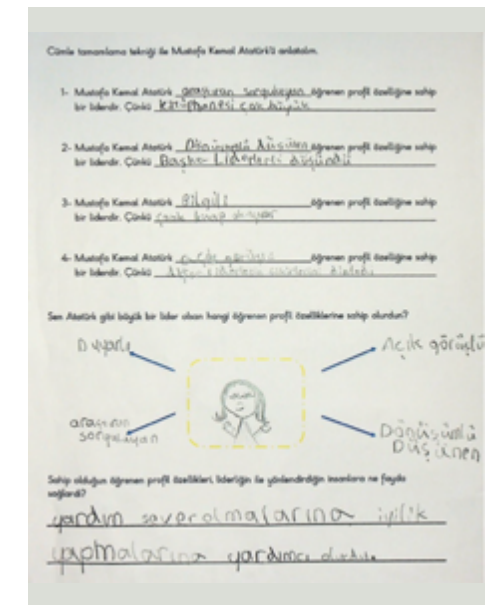 Cümle tamamlama tekniği ile Mustafa Kemal Atatürk'ü anlatalım.
1- Mustafa Kemal Atatürk araştıran sorgulayan öğrenen profil özelliğine sahip
bir liderdir. Çünkü kütüphanesi çok büyük
2- Mustafa Kemal Atatürk Dönüşümlü düşünen öğrenen profil özelliğine sahip
bir liderdir. Çünkü Başka Liderleri düşündü
3- Mustafa Kemal Atatürk Bilgili öğrenen profil özelliğine sahip
bir liderdir. Çünkü kitap
4- Mustafa Kemal Atatürk açık görüşlü öğrenen profil özelliğine sahip
bir liderdir. Çünkü
Sen Atatürk gibi büyük bir lider olsan hangi öğrenen profil özelliklerine sahip olurdun?
Duyarlı
Açık görüşlü
araştıran
sorgulayan
Dönüşümlü
Düşünen
Sahip olduğun öğrenen profil özellikleri, liderliğin ile yönlendirdiğin insanlara ne fayda
sağlardı?
yardım sever olmalarına iyilik
yapmalarına yardımcı olurdu.